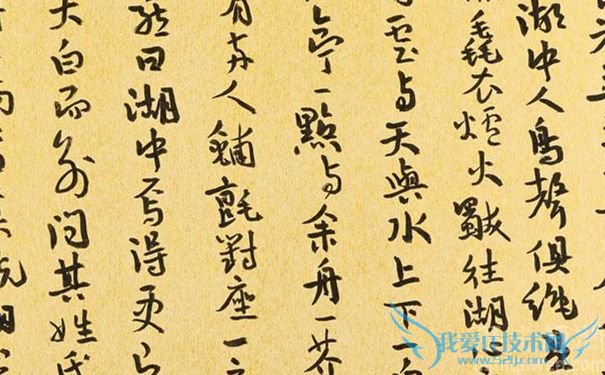 湖中人鳥聲俱絕是
毳衣爐火獨往湖
雲与天與水上下一
亭一點与余舟一芥
有兩人鋪氈對座一
曰湖中焉得更
大白而別問其姓氏
我爱IT技术网
www.52ij.com